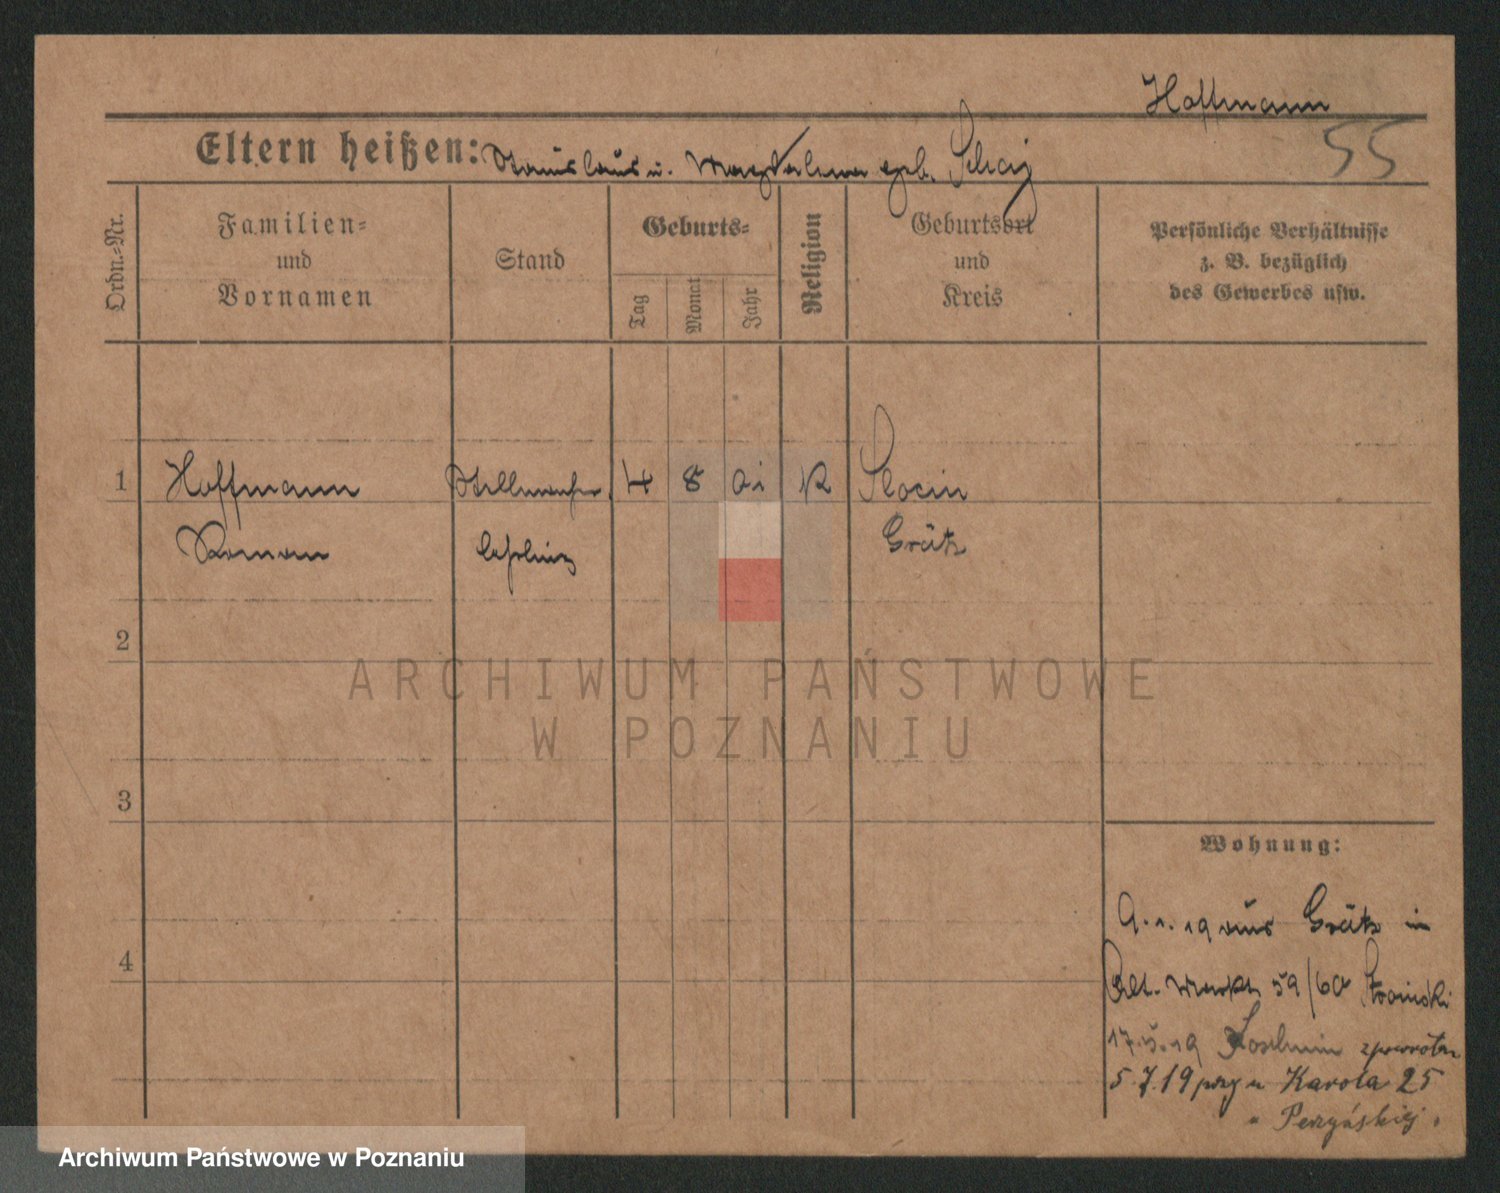 Hoffmann
55
Eltern heißen: Stanislaus u. Magdalena geb.
Ordn.-Nr.
Familien-
und
Vornamen
Stand
Geburts-
Tag
Monat
Jahr
Religion
Geburtsort
und
Kreis
Persönliche Verhältnisse
z. B. bezüglich
des Gewerbes usw.
1 Hoffmann 4 8 01 K Slocin
Roman Grätz
2
ARCHIWUM PAŃSTWOWE
W POZNANIU
3
Wohnung:
9.1.19 aus Grätz in
4
Alt. Markt 59/60
17.5.19
5.7.19 przy u Karola 25
" Peszyńskiej.
Archiwum Państwowe w Poznaniu